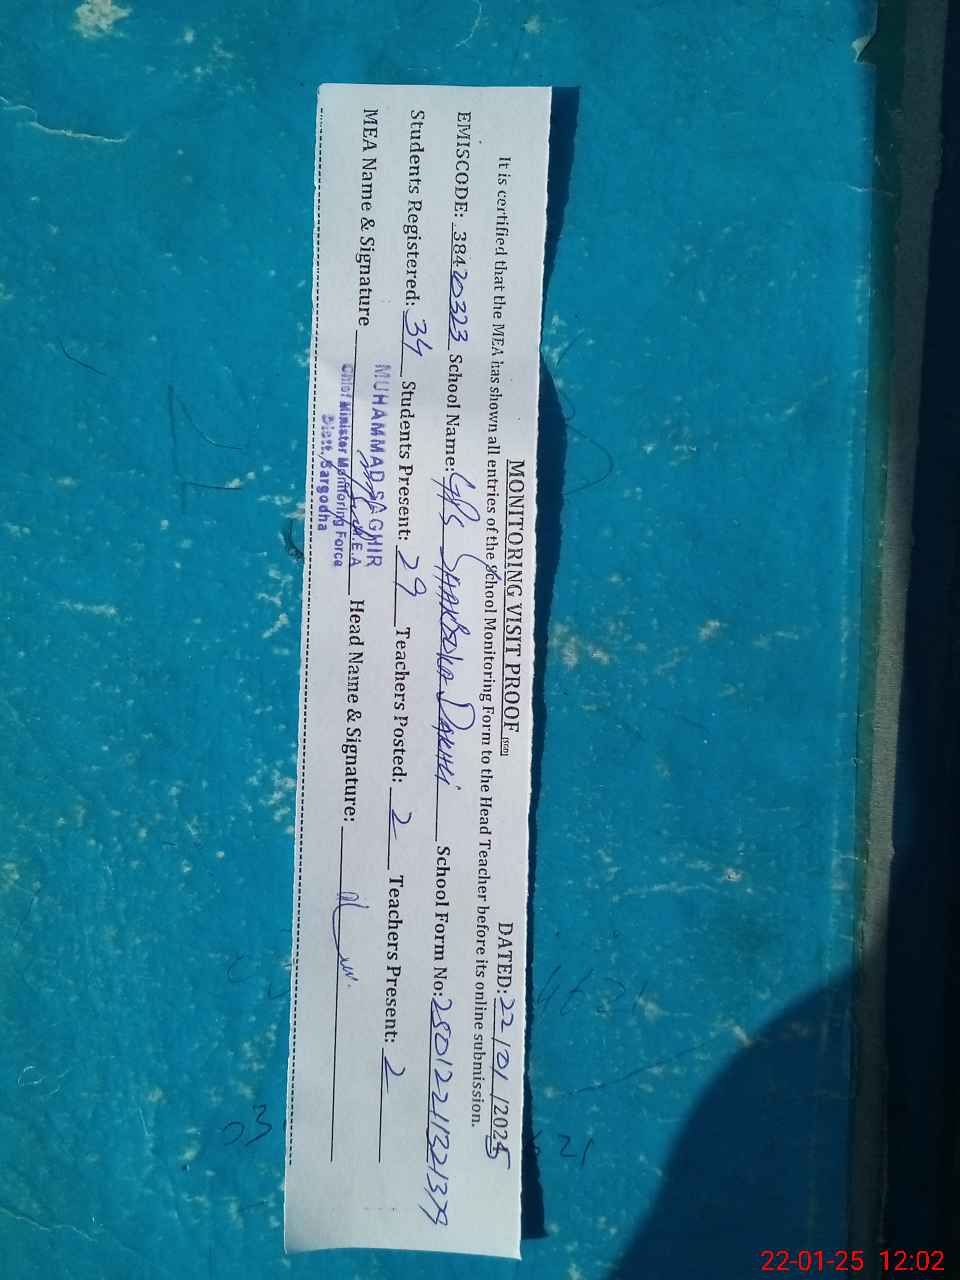 MONITORING VISIT PROOF (SGD) DATED: 22/01/2025
It is certified that the MEA has shown all entries of the School Monitoring Form to the Head Teacher before its online submission.
EMISCODE: 38420323 School Name: GPS Dakhli School Form No: 2501221321379
Students Registered: 34 Students Present: 29 Teachers Posted: 2 Teachers Present: 2
MEA Name & Signature Head Name & Signature:
MUHAMMAD SAGHIR
M.E.A
Chief Minister Monitoring Force
Distt, Sargodha
22-01-25 12:02